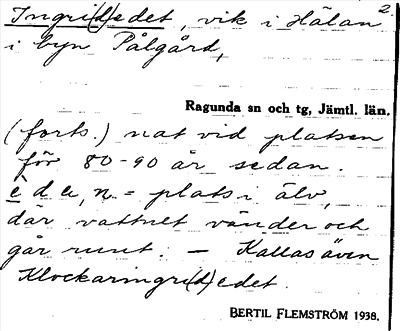 Ingri(d)edet, vik i Hälan 2.
i byn Pålgård,
Ragunda sn och tg, Jämtl. län.
(forts.) nat vid platsen
för 80-90 år sedan.
èda, n = plats i älv,
där vattnet vänder och
går runt. - Kallas även
Klockaringri(d)edet.
BERTIL FLEMSTRÖM 1938.